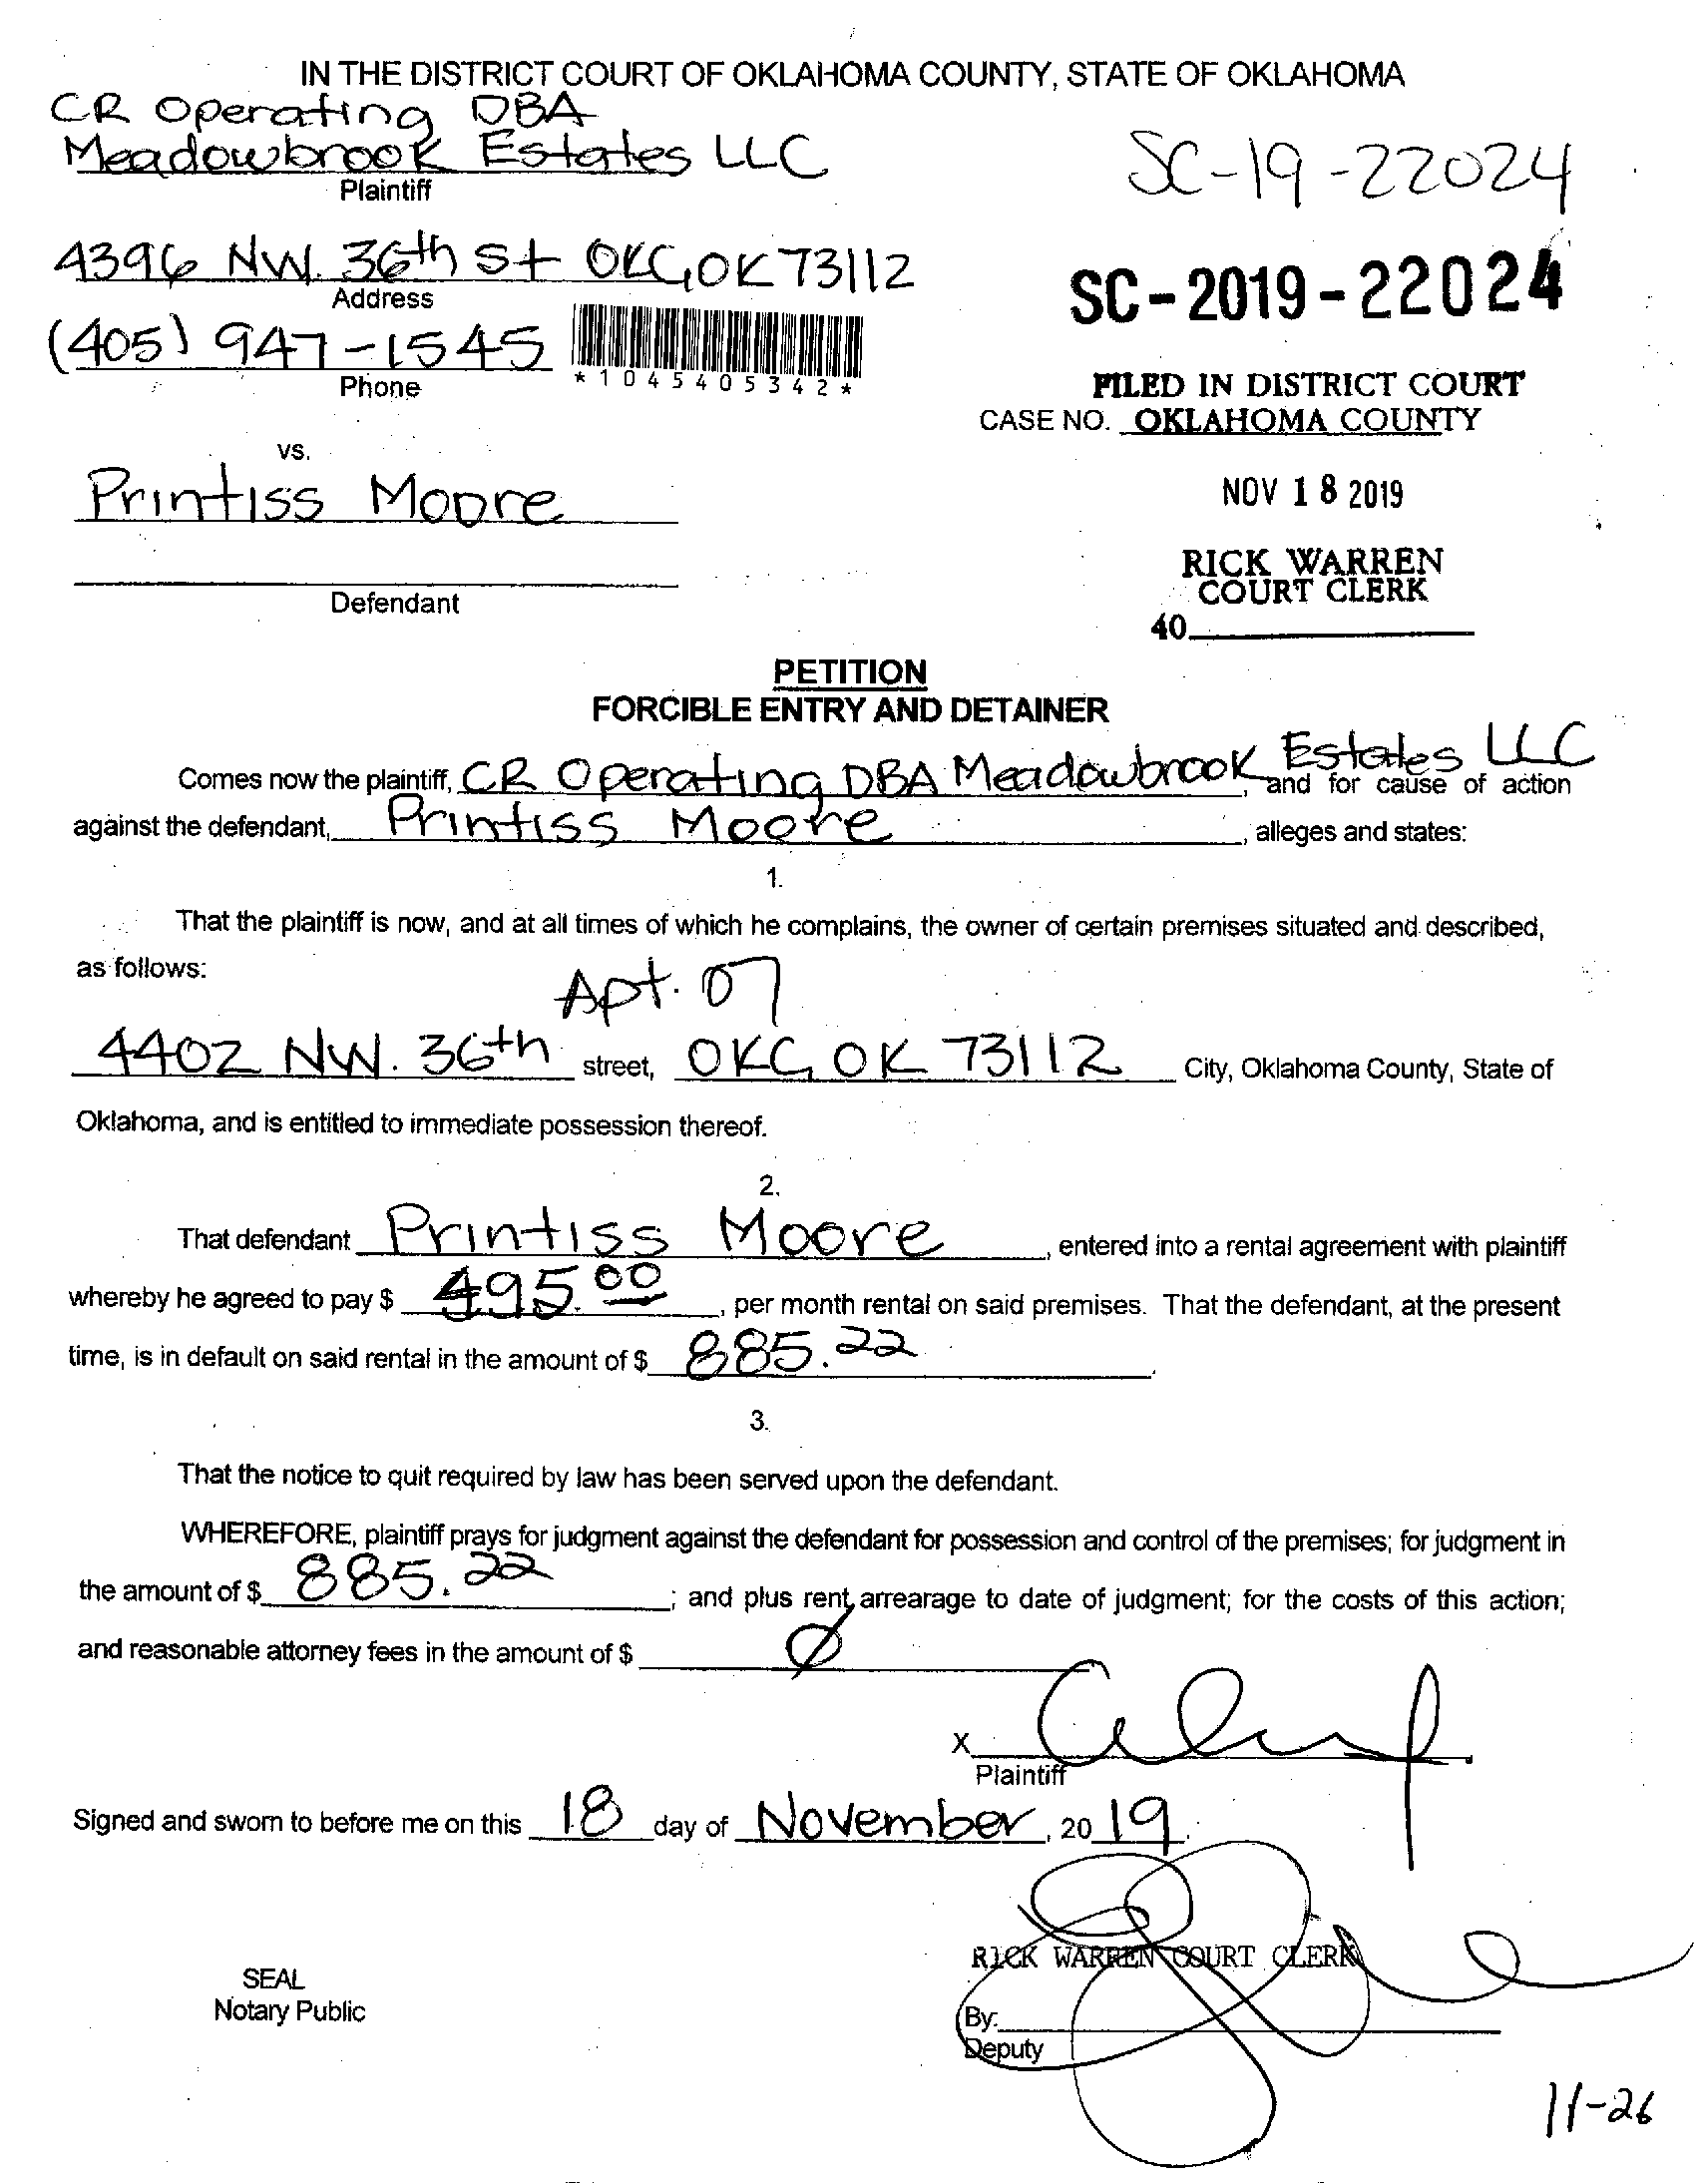 IN THE DISTRICT COURT OF OKLAHOMA COUNTY, STATE OF OKLAHOMA
CR Operating DBA
Meadowbrook Estates LLC
Plaintiff
SC-19-22024
4396 NW. 36th St OKC, OK 73112
Address
SC-2019-22024
(405) 947-1545
Phone
*1045405342*
FILED IN DISTRICT COURT
CASE NO. OKLAHOMA COUNTY
vs.
Printiss Moore
NOV 18 2019
RICK WARREN
COURT CLERK
Defendant
40
PETITION
FORCIBLE ENTRY AND DETAINER
Comes now the plaintiff, CR Operating DBA Meadowbrook Estates LLC, and for cause of action
against the defendant, Printiss Moore, alleges and states:
1.
That the plaintiff is now, and at all times of which he complains, the owner of certain premises situated and described,
as follows:
Apt. 07
4402 NW. 36th street, OKC, OK 73112 City, Oklahoma County, State of
Oklahoma, and is entitled to immediate possession thereof.
2.
That defendant Printiss Moore, entered into a rental agreement with plaintiff
whereby he agreed to pay $ 495.00, per month rental on said premises. That the defendant, at the present
time, is in default on said rental in the amount of $ 885.22.
3.
That the notice to quit required by law has been served upon the defendant.
WHEREFORE, plaintiff prays for judgment against the defendant for possession and control of the premises; for judgment in
the amount of $ 885.22; and plus rent arrearage to date of judgment; for the costs of this action;
and reasonable attorney fees in the amount of $ Ø
X
Plaintiff
Signed and sworn to before me on this 18 day of November, 2019.
RICK WARREN COURT CLERK
SEAL
Notary Public
By:
Deputy
11-26